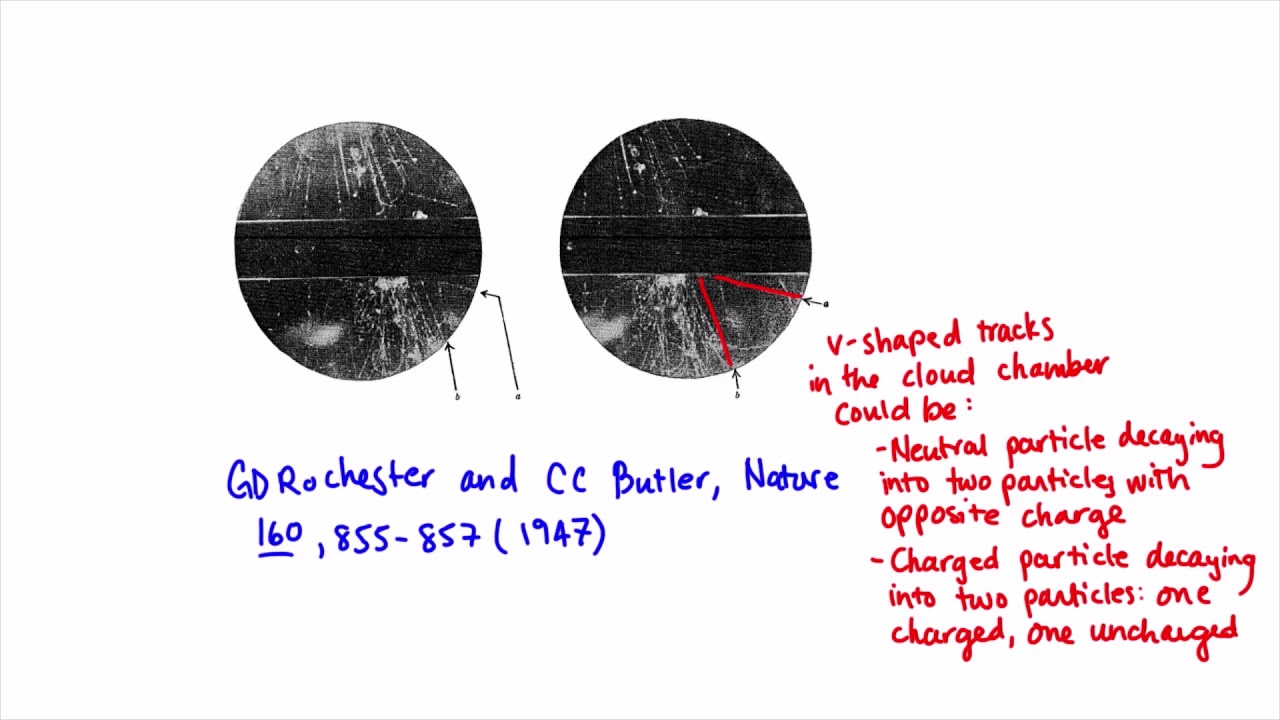 b
a
a
b
V-shaped tracks
in the cloud chamber
could be:
-Neutral particle decaying
into two particles with
opposite charge
-Charged particle decaying
into two particles: one
charged, one uncharged
GD Rochester and CC Butler, Nature
160, 855-857 (1947)